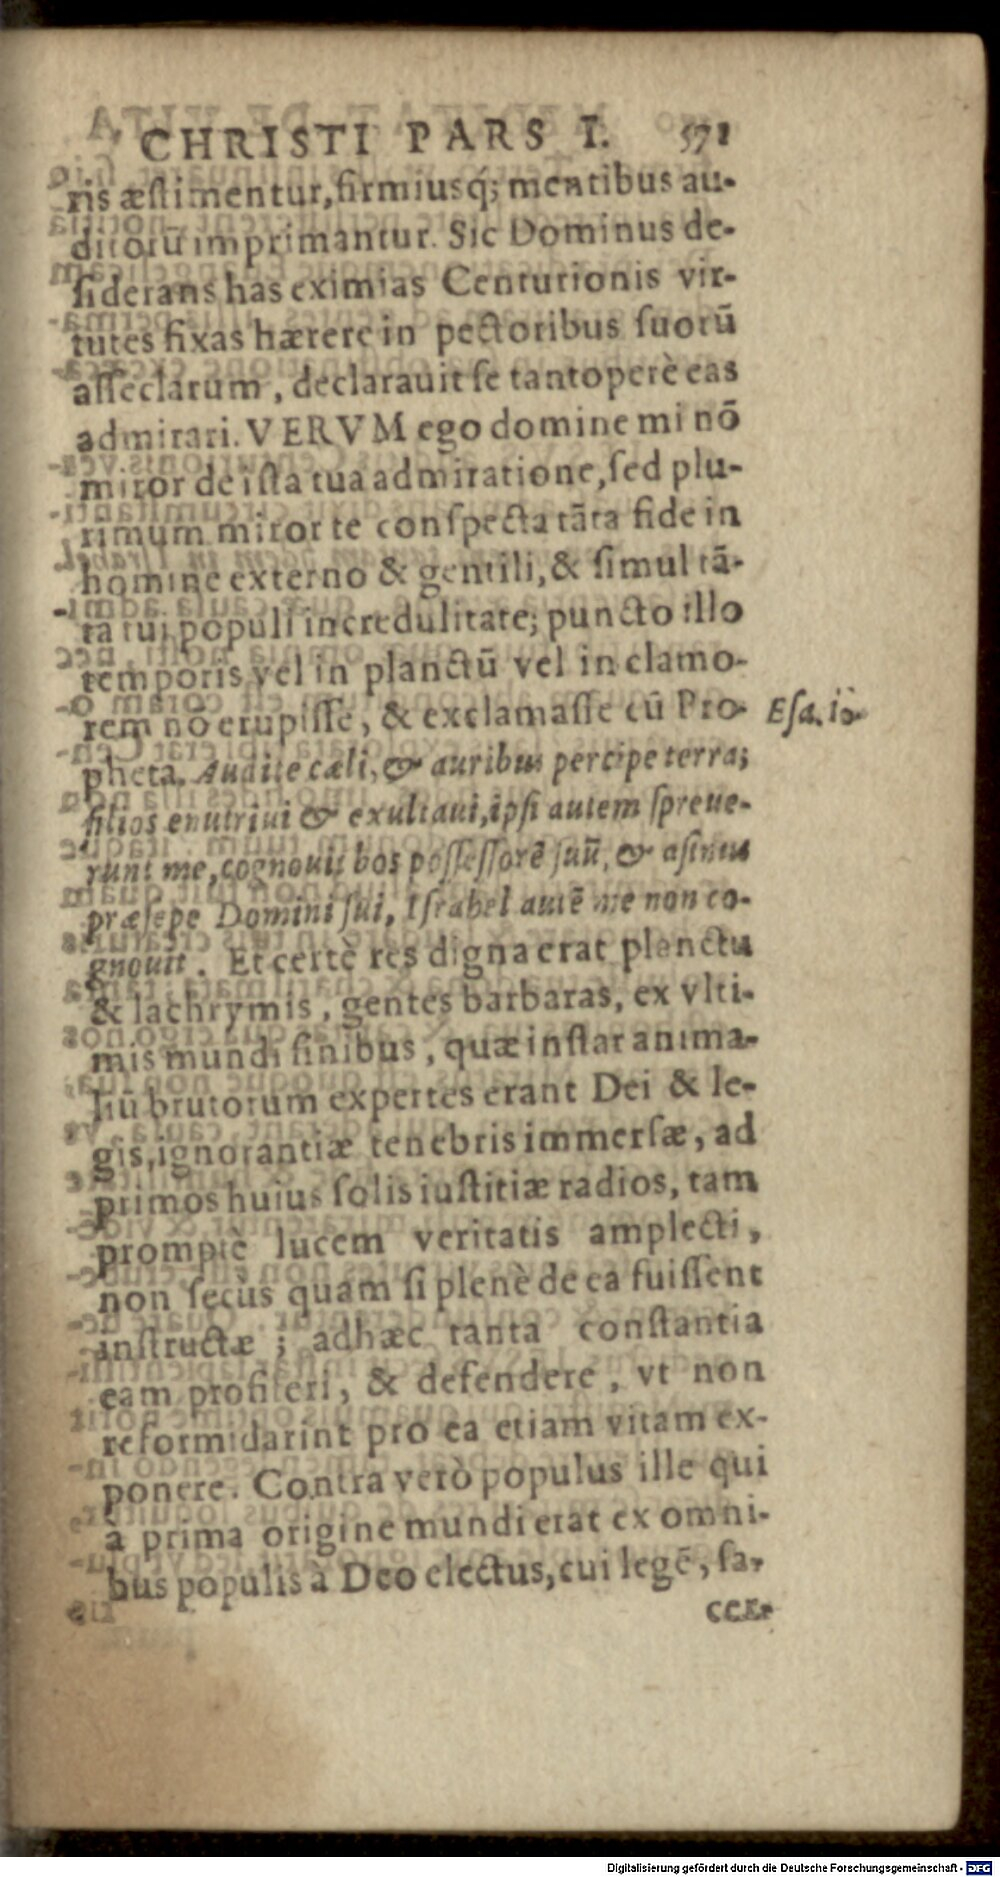 CHRISTI PARS I. 571
ris æstimentur, firmiusq́; mentibus au-
ditorũ imprimantur. Sic Dominus de-
siderans has eximias Centurionis vir-
tutes fixas hærere in pectoribus suorũ
asseclarum, declarauit se tantoperè eas
admirari. VERVM ego domine mi nõ
miror de ista tua admiratione, sed plu-
rimum miror te conspecta tãta fide in
homine externo & gentili, & simul tã-
ta tui populi incredulitate; puncto illo
temporis vel in planctũ vel in clamo-
rem nõ erupisse, & exclamasse cũ Pro-
Esa. 1.
pheta. Audite cæli, & auribus percipe terra;
filios enutriui & exultaui, ipsi autem spreue-
runt me, cognouit bos possessorẽ suũ, & asinus
præsepe Domini sui, Israhel autẽ me non co-
gnouit. Et certè res digna erat planctu
& lachrymis, gentes barbaras, ex vlti-
mis mundi finibus, quæ instar anima-
liũ brutorum expertes erant Dei & le-
gis, ignorantiæ tenebris immersæ, ad
primos huius solis iustitiæ radios, tam
promptè lucem veritatis amplecti,
non secùs quam si plenè de ea fuissent
instructæ; adhæc tanta constantia
eam profiteri, & defendere, vt non
reformidarint pro ea etiam vitam ex-
ponere. Contra verò populus ille qui
à prima origine mundi erat ex omni-
bus populis à Deo electus, cui legẽ, sa-
Digitalisierung gefördert durch die Deutsche Forschungsgemeinschaft - DFG